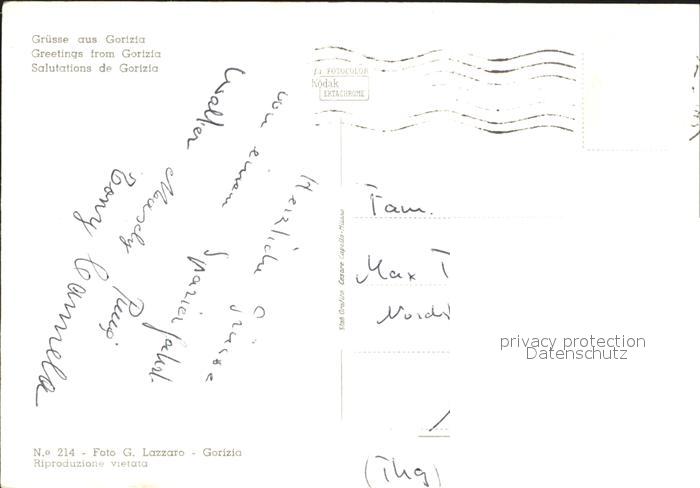 Grüsse aus Gorizia
Greetings from Gorizia
Salutations de Gorizia
FOTOCOLOR
Kodak
EKTACHROME
Herzliche Grüsse
von einem Spazierfahrt.
Walter
Tony
Carmela
Stab. Grafico Cesare Capello - Milano
Fam.
Max T
Nordh
(Thg)
privacy protection
Datenschutz
N.º 214 - Foto G. Lazzaro - Gorizia
Riproduzione vietata